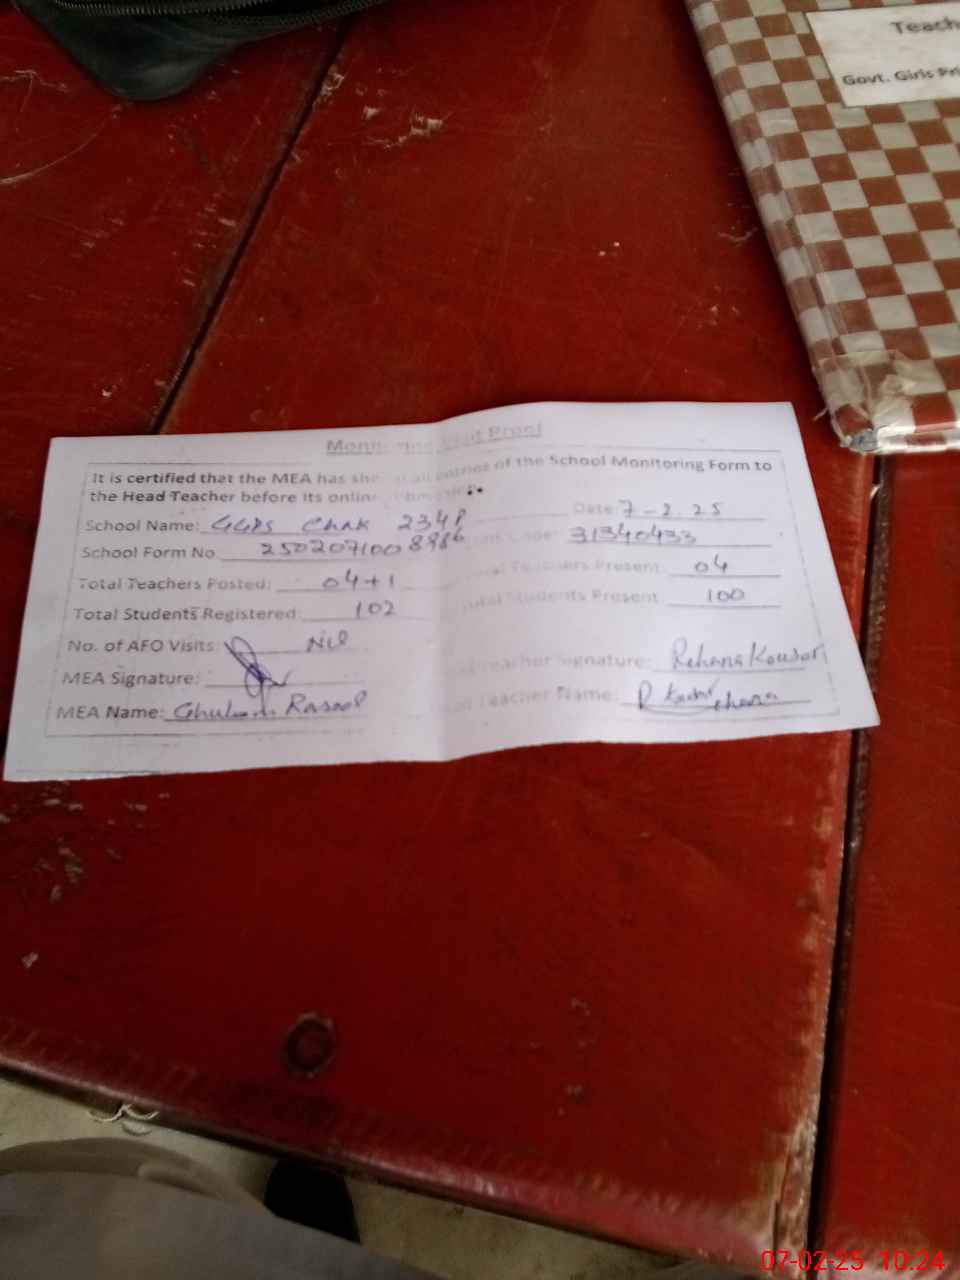 Teach
Govt. Girls Pri
Monitoring Visit Proof
It is certified that the MEA has all entries of the School Monitoring Form to
the Head Teacher before its online
School Name: GGPS Chak 234P Date: 7-2.25
School Form No 2502071008986 Code: 31340433
Total Teachers Posted: 04+1 Total Teachers Present: 04
Total Students Registered: 102 Total Students Present: 100
No. of AFO Visits: Nil
MEA Signature: Teacher Signature: Rehana Kousar
MEA Name: Ghulam Rasool Teacher Name: R
07-02-25 10:24